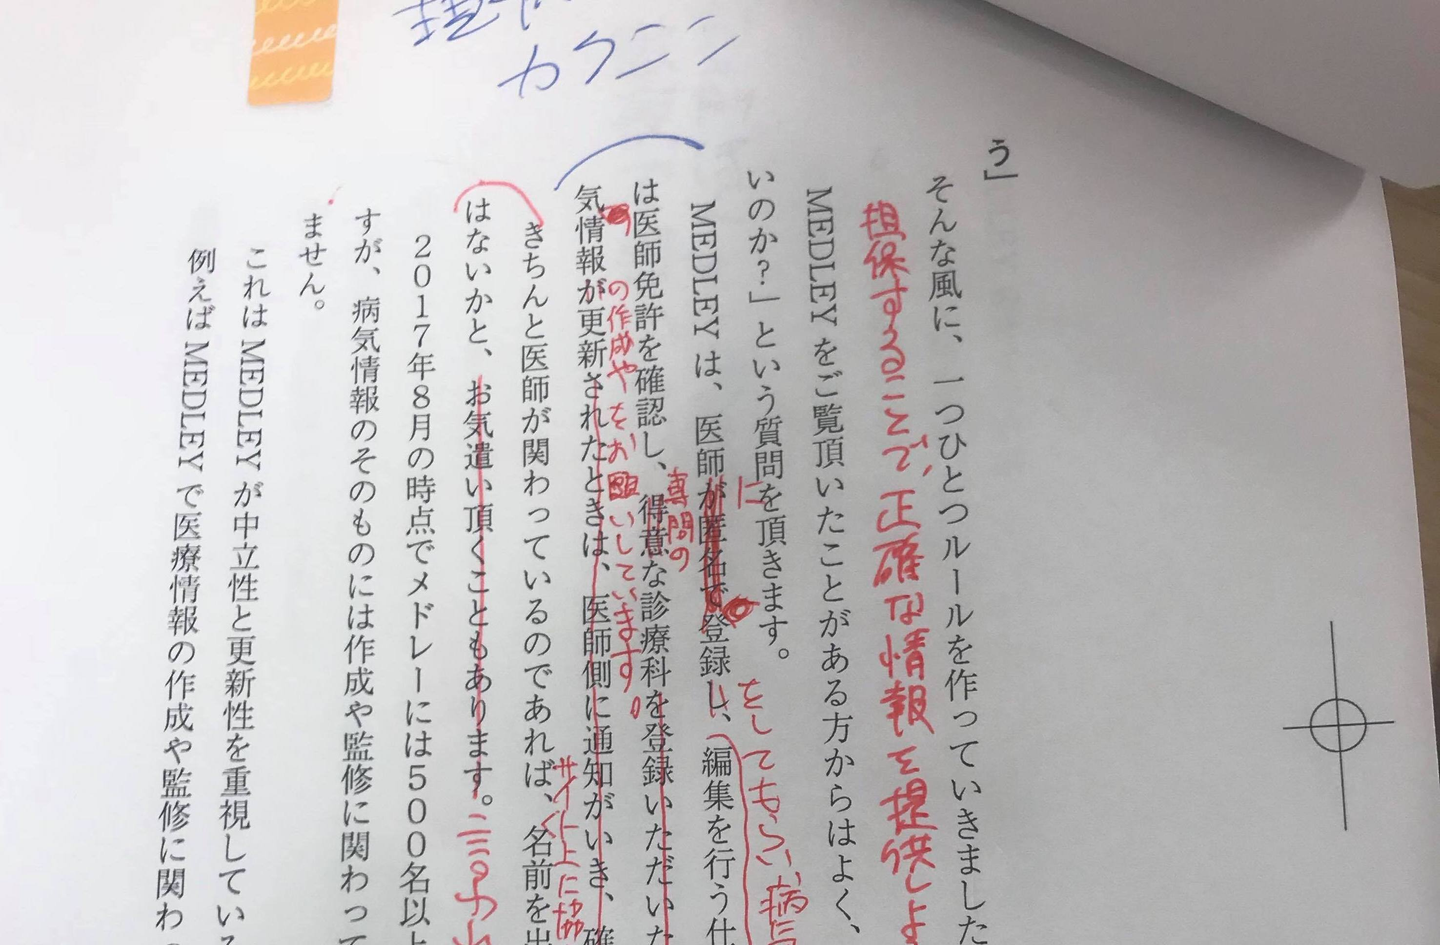 カクニン
う」
そんな風に、一つひとつルールを作っていきました
担保することで、正確な情報を提供しよ
MEDLEYをご覧頂いたことがある方からはよく、
いのか?」という質問を頂きます。
に
をしてもらい病気
MEDLEYは、医師が匿名で登録し、編集を行う仕
専門の
は医師免許を確認し、得意な診療科を登録いただいた
の作成やをお願いしています。
気情報が更新されたときは、医師側に通知がいき、確
サイト上に協
きちんと医師が関わっているのであれば、名前を出
はないかと、お気遣い頂くこともあります。
2017年8月の時点でメドレーには500名以上
すが、病気情報のそのものには作成や監修に関わって
ません。
これはMEDLEYが中立性と更新性を重視している
例えばMEDLEYで医療情報の作成や監修に関わ